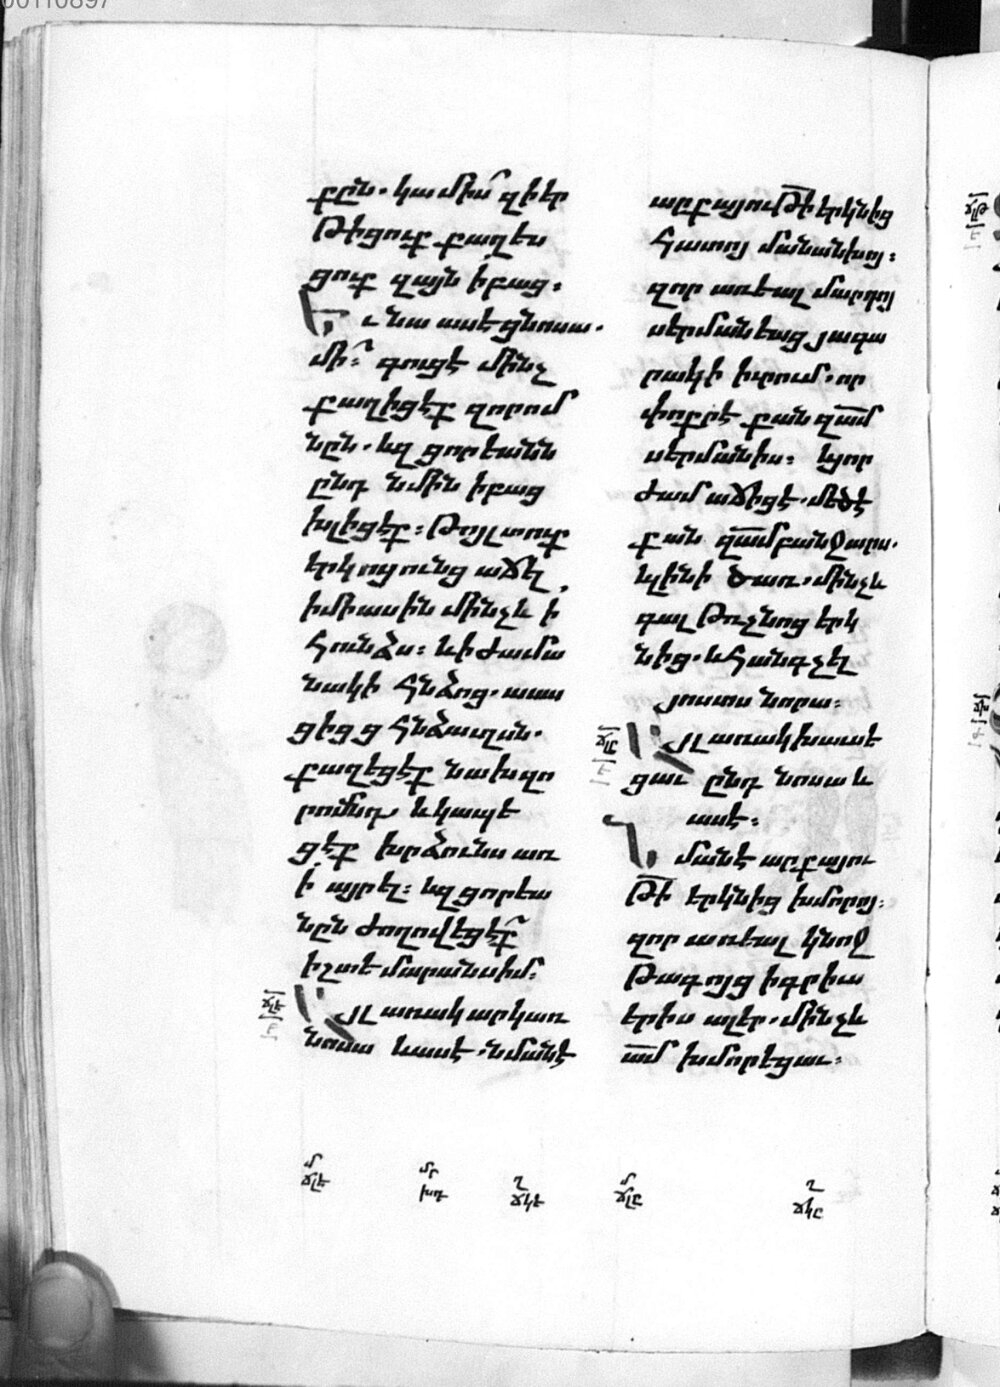 00110897
քըն. կամիս՞ զի եր
թիցուք քաղես
ցուք զայն ի բաց։
Եւ նա ասէ ցնոսա.
մի՛՞ գուցէ մինչ
քաղիցէք զորոմ
նըն. եզ ցորեանն
ընդ նմին ի բաց
խլիցէք։ Թոյլ տուք
երկոցունց աճել
ի միասին մինչև ի
հունձս։ և ի ժամա
նակի հնձոց. ասա
ցից ց հնձաւղսն.
քաղեցէք նախ զո
րոմնդ և կապե
ցէք խրձունս առ
ի այրել։ եզ ցորեա
նըն ժողովեցէ՛ք
ի շտեմարանս իմ։
Այլ առակ արկ առ
նոսա և ասէ. նմանէ
արքայութի երկնից
հատոյ մանանխոյ։
զոր առեալ մարդոյ
սերմանեաց յագա
րակի իւրում. որ
փոքր է քան զամ
սերմանիս։ Եւ յոր
ժամ աճիցէ. մեծ է
քան զամ բանջարս.
և լինի ծառ. մինչև
գալ թռչնոց երկ
նից. և հանգչել
յոստս նորա։
ճլը
Այլ առակ խաւսե
ցաւ ընդ նոսա և
ասէ։
Նմանէ արքայու
թի երկնից խմորոյ։
զոր առեալ կնոջ
թագոյց ի գրիւս
երիս ալեր. մինչև
ամ խմորեցաւ։
ճլէ
մ
ճլէ
մր
խդ
ղ
ճկէ
մ
ճլը
ղ
ճկը